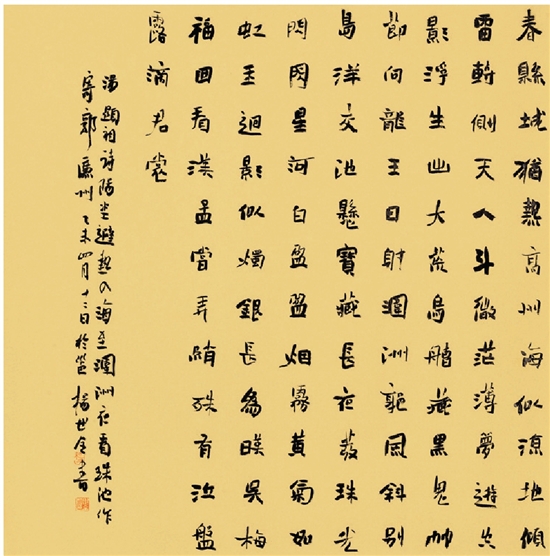 春縣城猶熱高州海似涼地傾
雷轉側天入斗微茫薄夢遊空
影浮生出大荒烏艚藏黑鬼竹
節向龍王日射潿洲郭風斜別
島洋交池懸寶藏長夜發珠光
閃閃星河白盈盈烟霧黃氣如
虹玉迴影似燭銀長為映吳梅
福回看漢孟嘗弄綃殊有泣盤
露滴君裳
湯顯祖詩陽江避熱入海至潿洲夜看珠池作
寄郭廉州 乙未四月十三日於邕 楊世全書